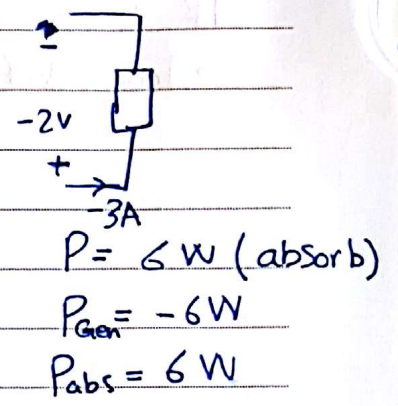 -
-2v
+
-3A
P= 6 W (absorb)
PGen= -6W
Pabs = 6 W